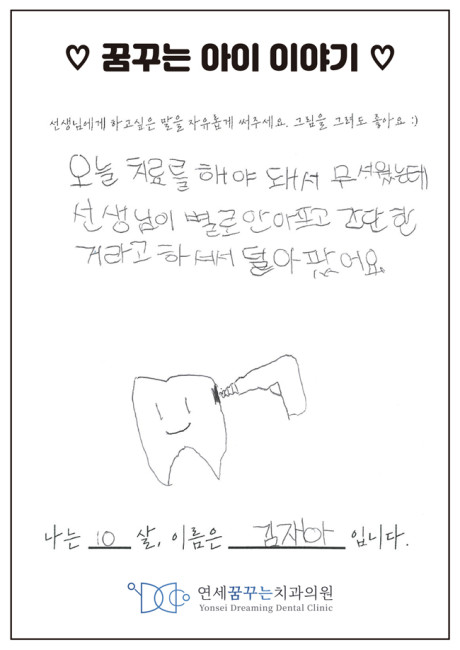 ♡ 꿈꾸는 아이 이야기 ♡
선생님에게 하고싶은 말을 자유롭게 써주세요. 그림을 그려도 좋아요 :)
오늘 치료를 해야 돼서 무서웠는데
선생님이 별로 안아프고 간단한
거라고 하셔서 덜아팠어요.
나는 10 살, 이름은 김자아 입니다.
연세꿈꾸는치과의원
Yonsei Dreaming Dental Clinic